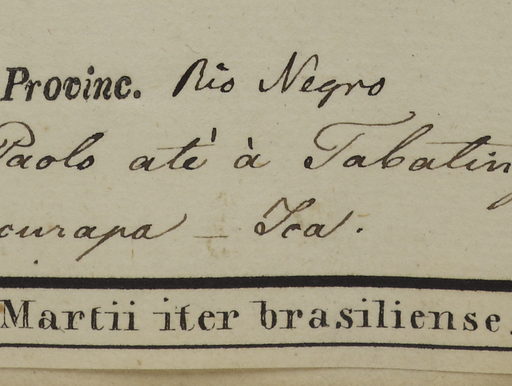 Provinc. Rio Negro
Paolo até à Tabating
curapa _ Ica.
Martii iter brasiliense.